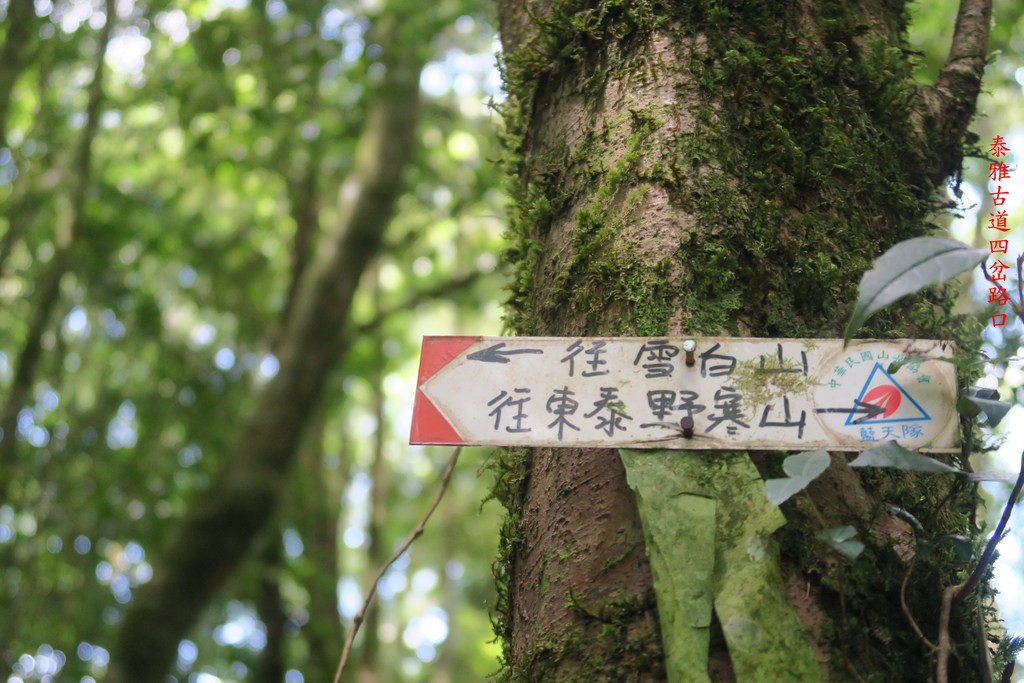 泰雅古道四岔路口
往雪白山
往東泰野寒山
中華民國山難救助協會
藍天隊